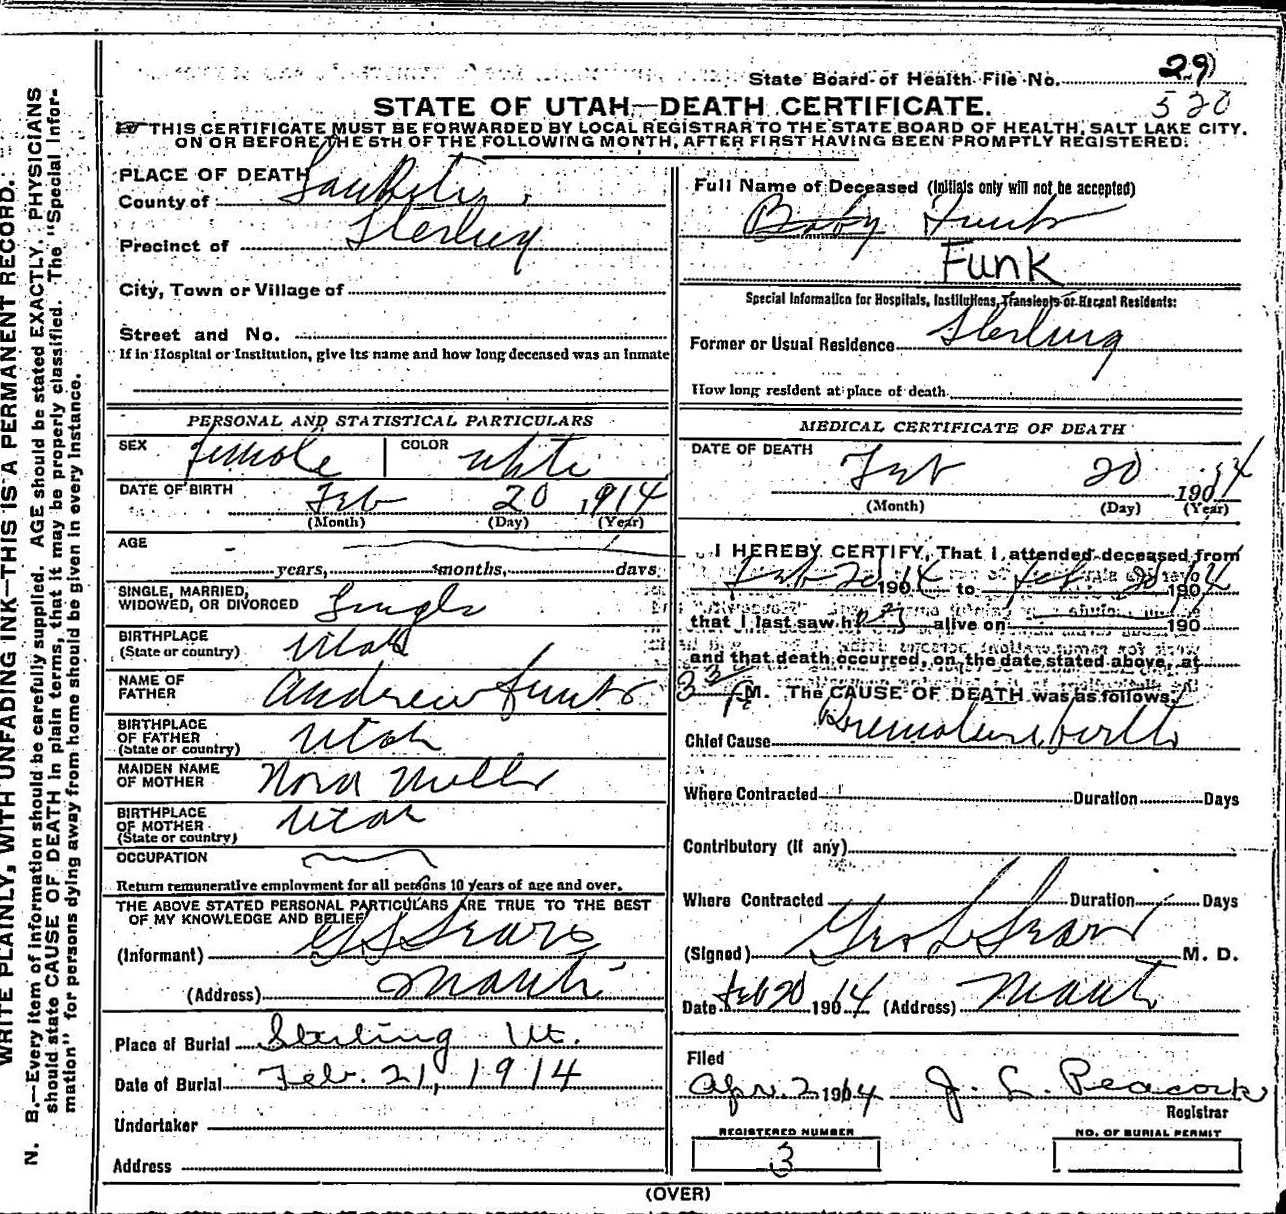 State Board of Health File No. 29
520
STATE OF UTAH—DEATH CERTIFICATE.
THIS CERTIFICATE MUST BE FORWARDED BY LOCAL REGISTRAR TO THE STATE BOARD OF HEALTH, SALT LAKE CITY,
ON OR BEFORE THE 5TH OF THE FOLLOWING MONTH, AFTER FIRST HAVING BEEN PROMPTLY REGISTERED.
WRITE PLAINLY, WITH UNFADING INK—THIS IS A PERMANENT RECORD.
N. B.—Every item of information should be carefully supplied. AGE should be stated EXACTLY. PHYSICIANS
should state CAUSE OF DEATH in plain terms, that it may be properly classified. The "Special Infor-
mation" for persons dying away from home should be given in every instance.
PLACE OF DEATH
County of SanPete
Precinct of Sterling
City, Town or Village of
Street and No.
If in Hospital or Institution, give its name and how long deceased was an inmate
Full Name of Deceased (Initials only will not be accepted)
Baby Funk
Funk
Special Information for Hospitals, Institutions, Transients or Recent Residents:
Former or Usual Residence Sterling
How long resident at place of death
PERSONAL AND STATISTICAL PARTICULARS
SEX Female COLOR White
DATE OF BIRTH Feb 20 1914
(Month) (Day) (Year)
AGE
years, months, days
SINGLE, MARRIED,
WIDOWED, OR DIVORCED Single
BIRTHPLACE
(State or country) Utah
NAME OF
FATHER Andrew Funk
BIRTHPLACE
OF FATHER
(State or country) Utah
MAIDEN NAME
OF MOTHER Nora
BIRTHPLACE
OF MOTHER
(State or country) Utah
OCCUPATION
Return remunerative employment for all persons 10 years of age and over.
THE ABOVE STATED PERSONAL PARTICULARS ARE TRUE TO THE BEST
OF MY KNOWLEDGE AND BELIEF
(Informant) G L Sears
(Address) Manti
Place of Burial Sterling Ut.
Date of Burial Feb. 21, 1914
Undertaker
Address
MEDICAL CERTIFICATE OF DEATH
DATE OF DEATH
Feb 20 1914
(Month) (Day) (Year)
I HEREBY CERTIFY, That I attended deceased from
Feb 20 1904 to Feb. 20 1904
that I last saw h alive on 190
and that death occurred, on the date stated above, at
M. The CAUSE OF DEATH was as follows:
Chief Cause Premature birth
Where Contracted Duration Days
Contributory (if any)
Where Contracted Duration Days
(Signed) Geo L Sears M. D.
Date Feb 20 1904 (Address) Manti
Filed
Apr. 2 1914 J. L. Peacock
Registrar
REGISTERED NUMBER
3
NO. OF BURIAL PERMIT
(OVER)